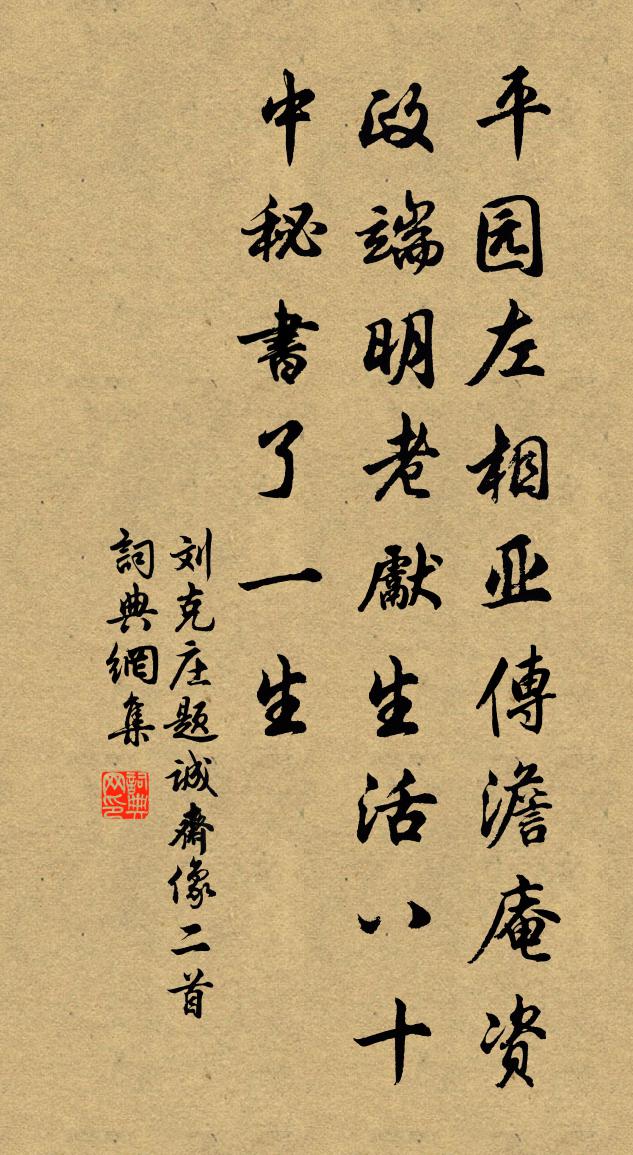 平园左相亚傳澹庵资
政端明老獻生活八十
中秘書了一生
刘克庄题诚齋像二首
詞典網集
詞典网印